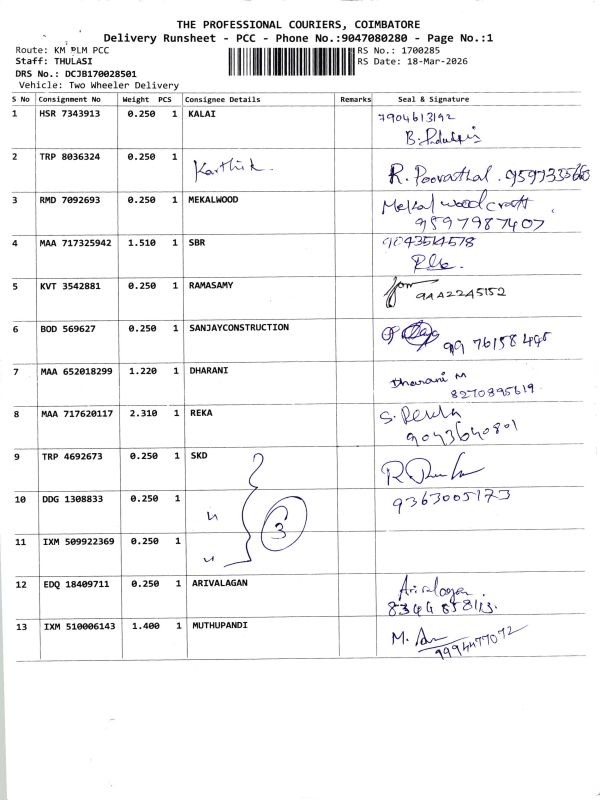 THE PROFESSIONAL COURIERS, COIMBATORE
Delivery Runsheet - PCC - Phone No.:9047080280 - Page No.:1
Route: KM PLM PCC
RS No.: 1700285
Staff: THULASI
RS Date: 18-Mar-2026
DRS No.: DCJB170028501
Vehicle: Two Wheeler Delivery
S No Consignment No Weight PCS Consignee Details Remarks Seal & Signature
1 HSR 7343913 0.250 1 KALAI 7904613192
B.
2 TRP 8036324 0.250 1 Karthik. R. Poovathal. 9597335663
3 RMD 7092693 0.250 1 MEKALWOOD Mekal wood craft.
9597987407
4 MAA 717325942 1.510 1 SBR 9043514578
5 KVT 3542881 0.250 1 RAMASAMY 9442245152
6 BOD 569627 0.250 1 SANJAYCONSTRUCTION
99 76158 495
7 MAA 652018299 1.220 1 DHARANI Dharani M
8270895619
8 MAA 717620117 2.310 1 REKA S. Rekha
9043640801
9 TRP 4692673 0.250 1 SKD
10 DDG 1308833 0.250 1 " 3 9363005173
11 IXM 509922369 0.250 1 "
12 EDQ 18409711 0.250 1 ARIVALAGAN Arivalagan
13 IXM 510006143 1.400 1 MUTHUPANDI M.
9994477072